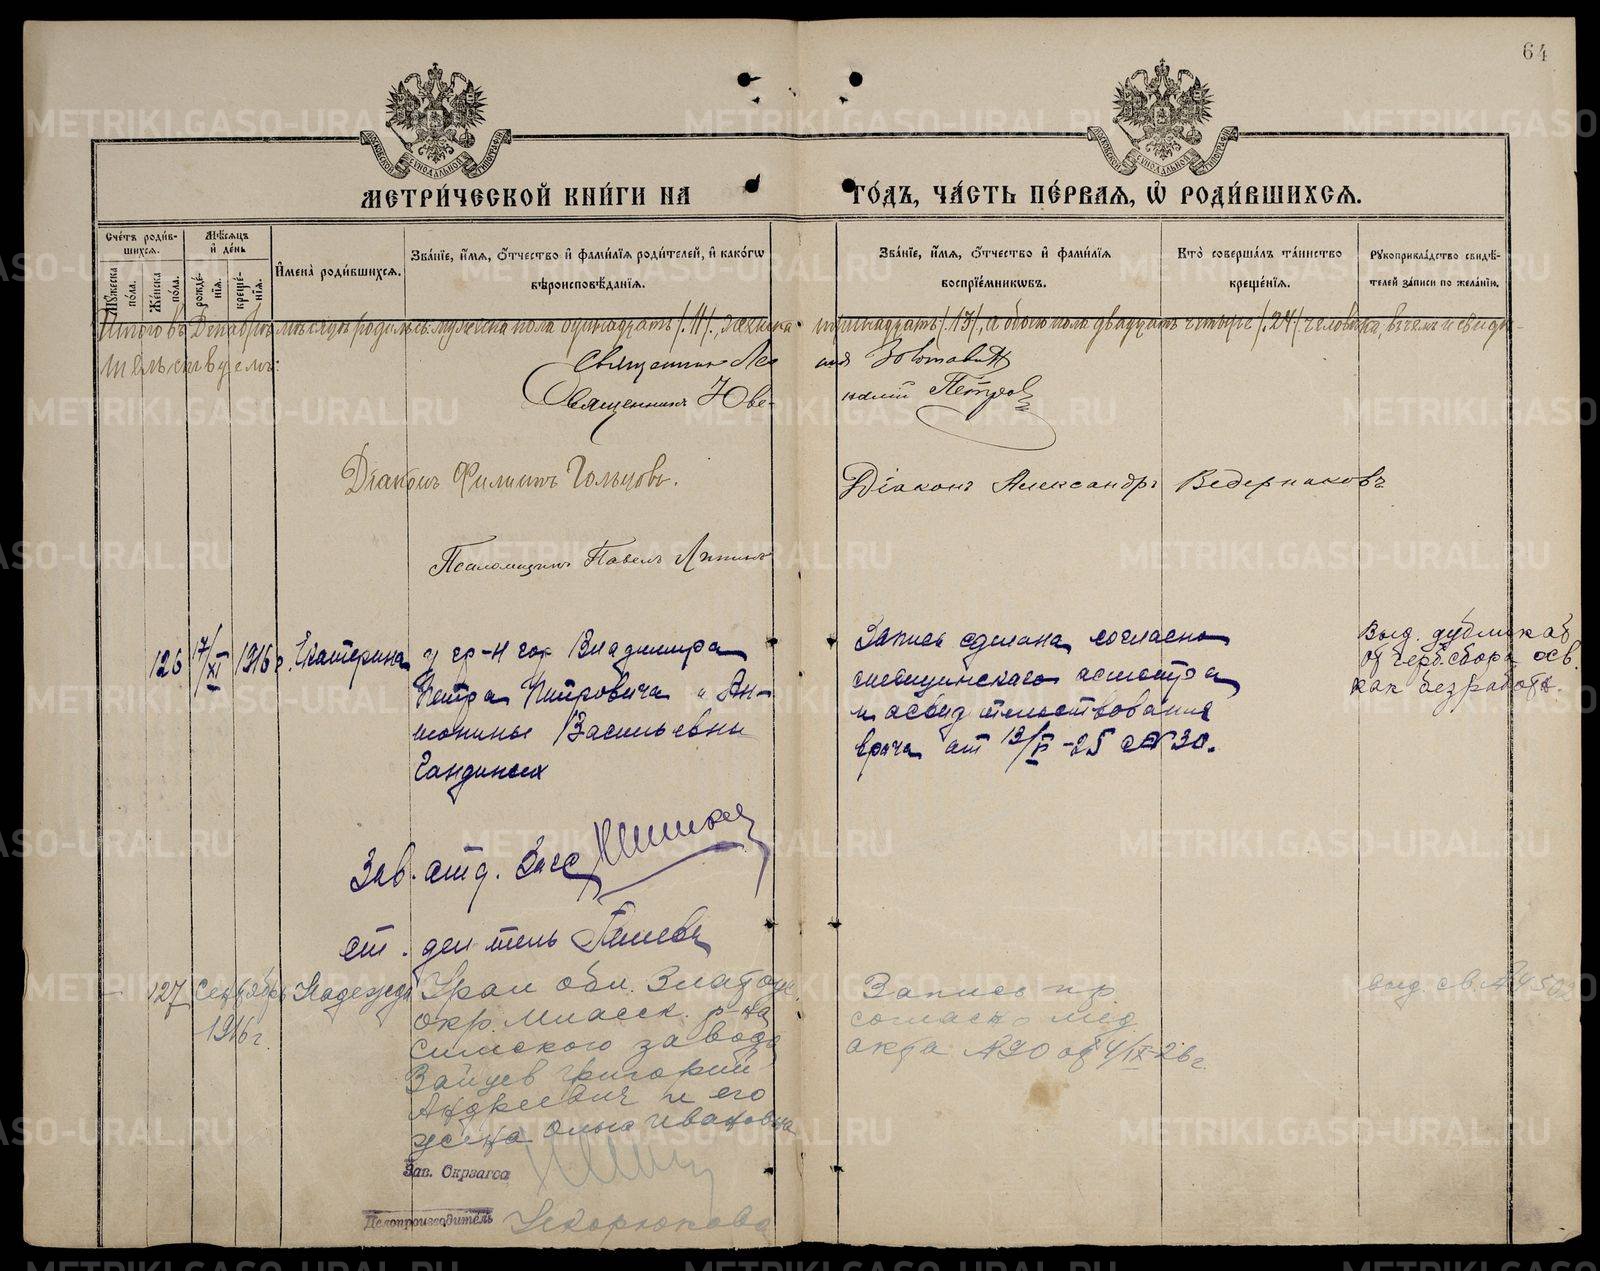 64
МЕТРИЧЕСКОЙ КНИГИ НА ГОДЪ, ЧАСТЬ ПЕРВАЯ, Ѿ РОДИВШИХСЯ.
Счетъ родившихся.
Мужеска пола.
Женска пола.
Мѣсяцъ и день
рожденія.
крещенія.
Имена родившихся.
Званіе, имя, отчество и фамилія родителей, и какогѡ вѣроисповѣданія.
Званіе, имя, отчество и фамилія воспріемникѡвъ.
Кто совершалъ таинство крещенія.
Рукоприкладство свидѣтелей записи по желанію.
Итого въ Декабрѣ мѣсяцѣ родилось: мужеска пола одинадцать /11/, женска тринадцать /13/, а обоего пола двадцать четыре /24/ человѣка, въ чемъ и свидѣ-
тельствуемъ:
Священникъ
Священникъ Юве-
налій Петров
Діаконъ Филиппъ Гольцовъ.
Діаконъ Александръ Ведерниковъ
Псаломщикъ Павелъ
126 17/XI 1916 г. Екатерина
у гр-н гор Владимира
Петра Петровича и Ан-
тонины Васильевны
Запись сделана согласно
медицинскаго осмотра
и освидетельствования
врача от
Выд. дубликат
от герб. сбора осв.
как безработн.
Зав. отд. Загс
127 Сентябрь 1916 г. Надежда
Урал обл. Златоус.
окр. Миасск. р-на
Симского завода
Зайцев Григорий
Андреевич и его
жена Ольга Ивановна
Запись пр.
согласно мед.
акта №90 от 4/IX-26 г.
выд. св.
Зав. Окрзагса
Делопроизводитель